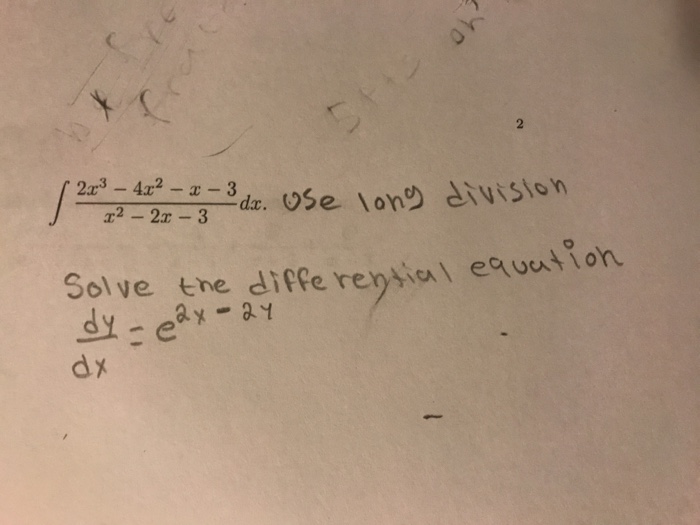 2
∫ 2x³ − 4x² − x − 3 / x² − 2x − 3 dx. Use long division
Solve the differential equation
dy/dx = e^{2x − 2y}